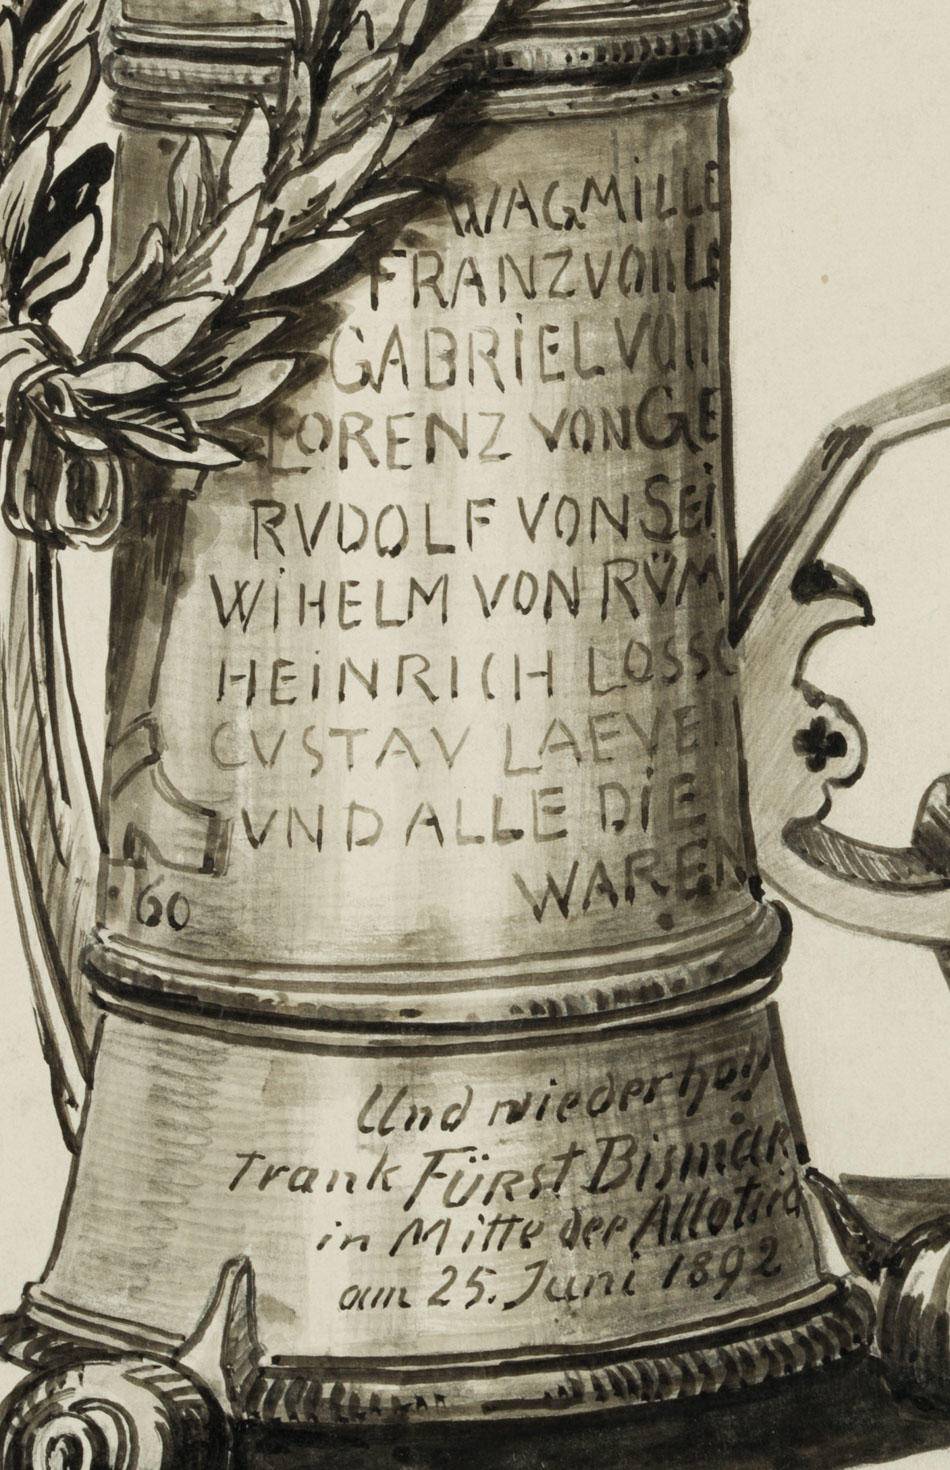 WAGMILLE
FRANZ VON LE
GABRIEL VON
LORENZ VON GE
RVDOLF VON SEi
WiHELM VON RÜM
HEiNRICH LOSSO
GVSTAV LAEVE
VND ALLE DiE
WAREN
60
Und wiederholt
Trank FÜRST Bismar
in Mitte der Allotria
am 25. Juni 1892